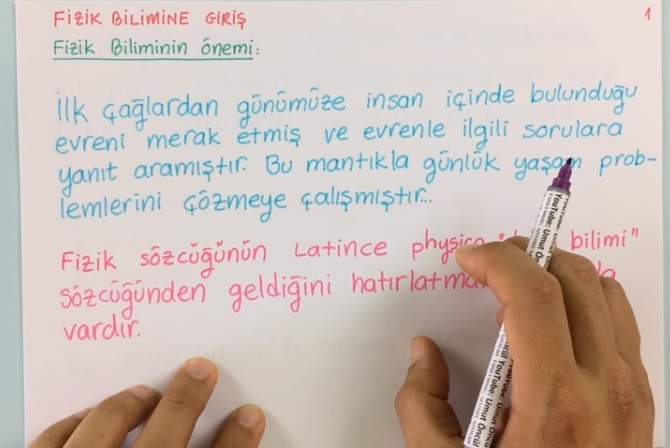 FİZİK BİLİMİNE GİRİŞ
1
Fizik Biliminin önemi:
İlk çağlardan günümüze insan içinde bulunduğu
evreni merak etmiş ve evrenle ilgili sorulara
yanıt aramıştır. Bu mantıkla günlük yaşam prob-
lemlerini çözmeye çalışmıştır...
Fizik sözcüğünün Latince bilimi"
sözcüğünden geldiğini
vardır.
YouTube: Umut Öncül